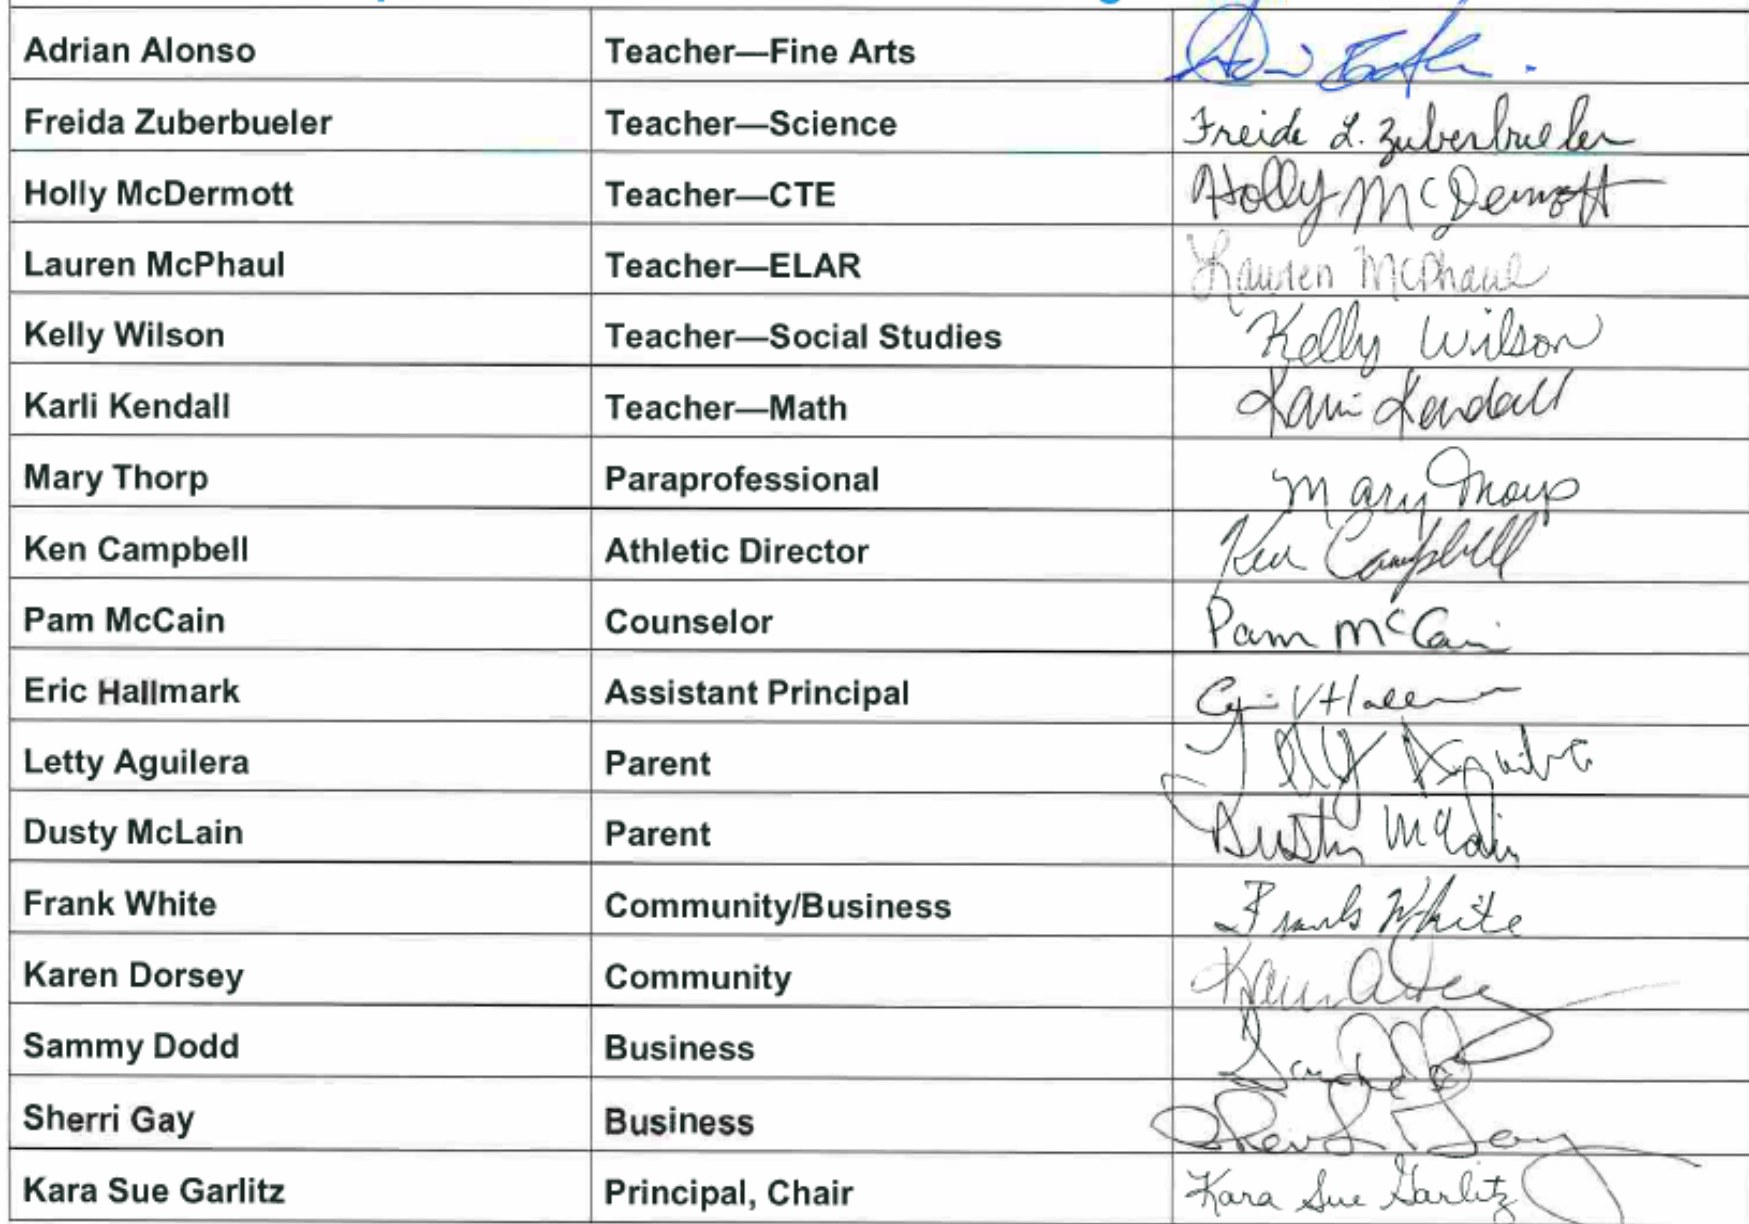 Adrian Alonso Teacher—Fine Arts
Freida Zuberbueler Teacher—Science Freida L. Zuberbueler
Holly McDermott Teacher—CTE Holly McDermott
Lauren McPhaul Teacher—ELAR Lauren McPhaul
Kelly Wilson Teacher—Social Studies Kelly Wilson
Karli Kendall Teacher—Math Karli Kendall
Mary Thorp Paraprofessional Mary Thorp
Ken Campbell Athletic Director Ken Campbell
Pam McCain Counselor Pam McCain
Eric Hallmark Assistant Principal
Letty Aguilera Parent Letty Aguilera
Dusty McLain Parent Dusty McLain
Frank White Community/Business Frank White
Karen Dorsey Community
Sammy Dodd Business
Sherri Gay Business Sherri Gay
Kara Sue Garlitz Principal, Chair Kara Sue Garlitz